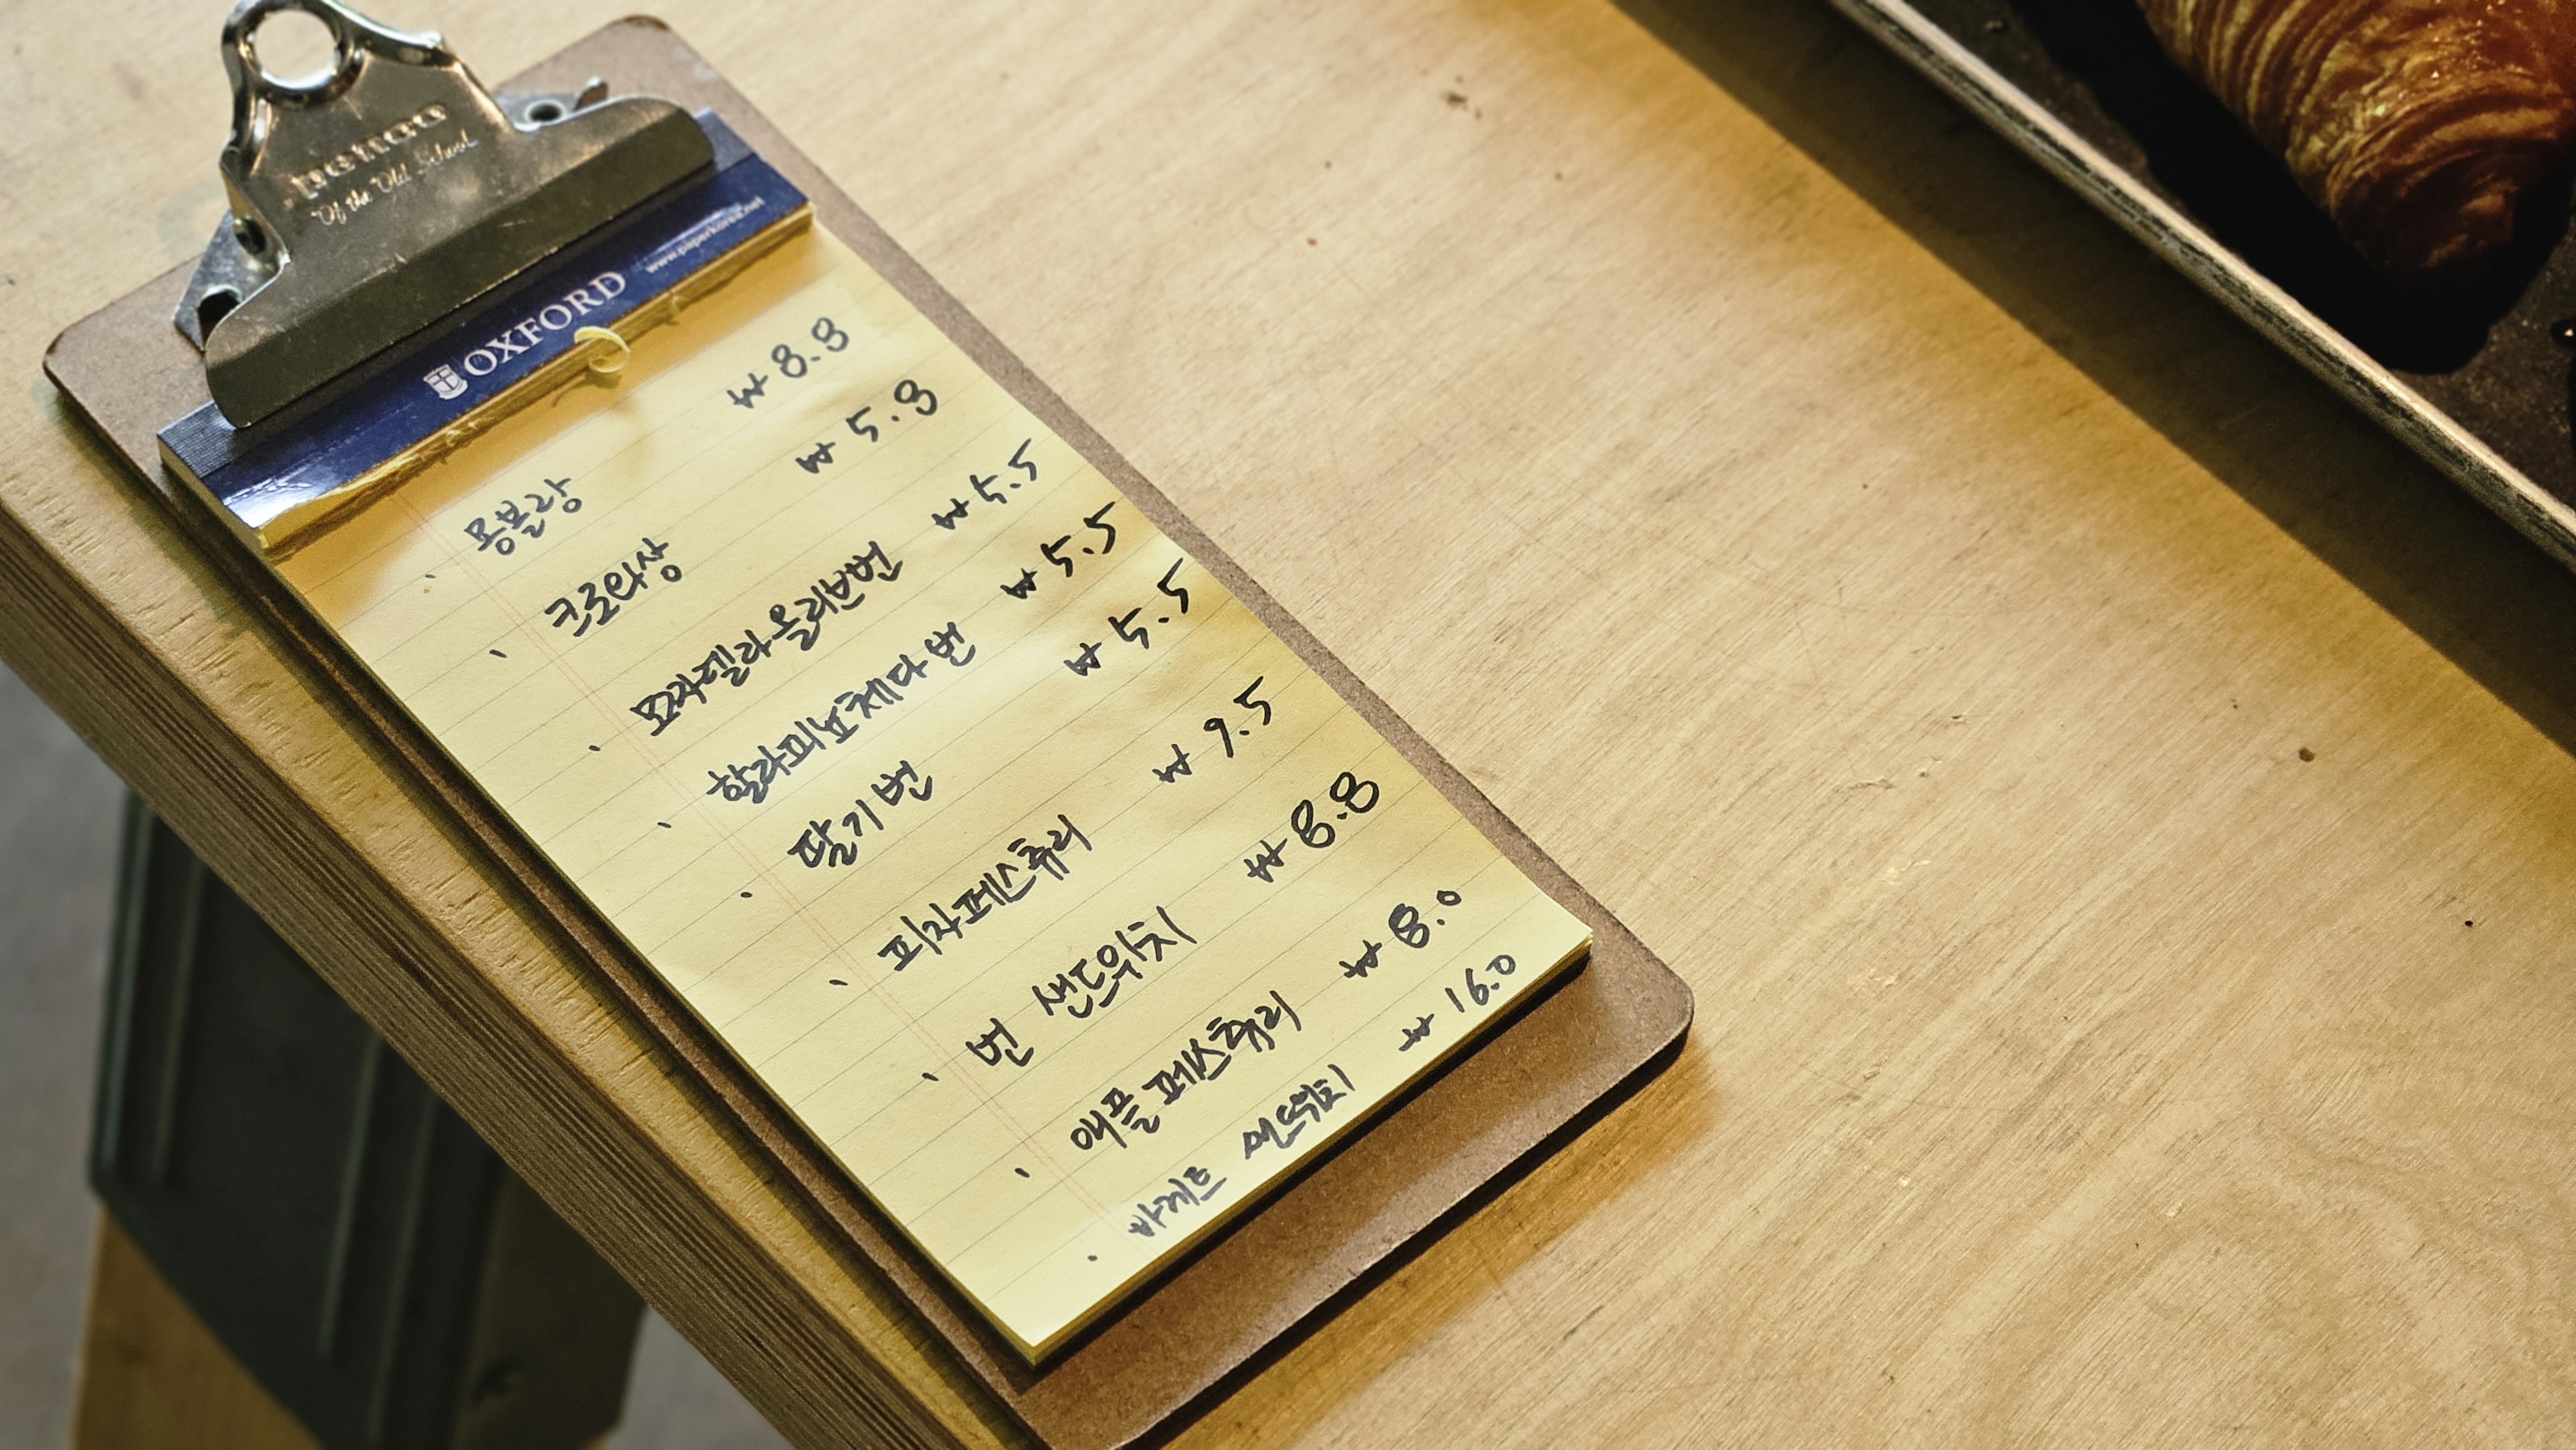 Of the Old School
OXFORD
www.paperkorea.net
· 몽블랑 ₩ 8.8
· 크로와상 ₩ 5.8
· 모짜렐라올리브번 ₩ 5.5
· 할라피뇨체다 번 ₩ 5.5
· 딸기 번 ₩ 5.5
· 피자페스츄리 ₩ 9.5
· 번 샌드위치 ₩ 8.8
· 애플 페스츄리 ₩ 8.0
· 바게트 샌드위치 ₩ 16.0